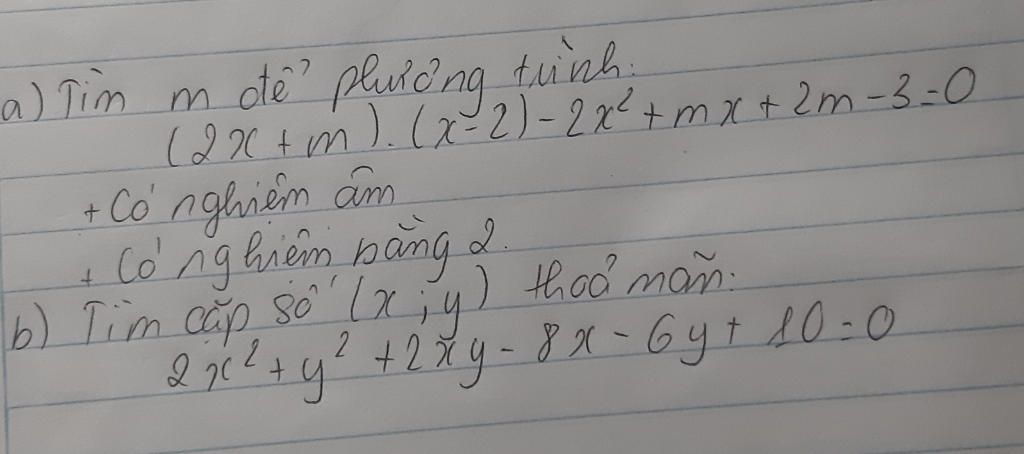 a) Tìm m để phương trình:
(2x + m).(x-2) - 2x² + mx + 2m - 3 = 0
+ Có nghiệm âm
+ Có nghiệm bằng 2.
b) Tìm cặp số (x; y) thoả mãn:
2x² + y² + 2xy - 8x - 6y + 10 = 0